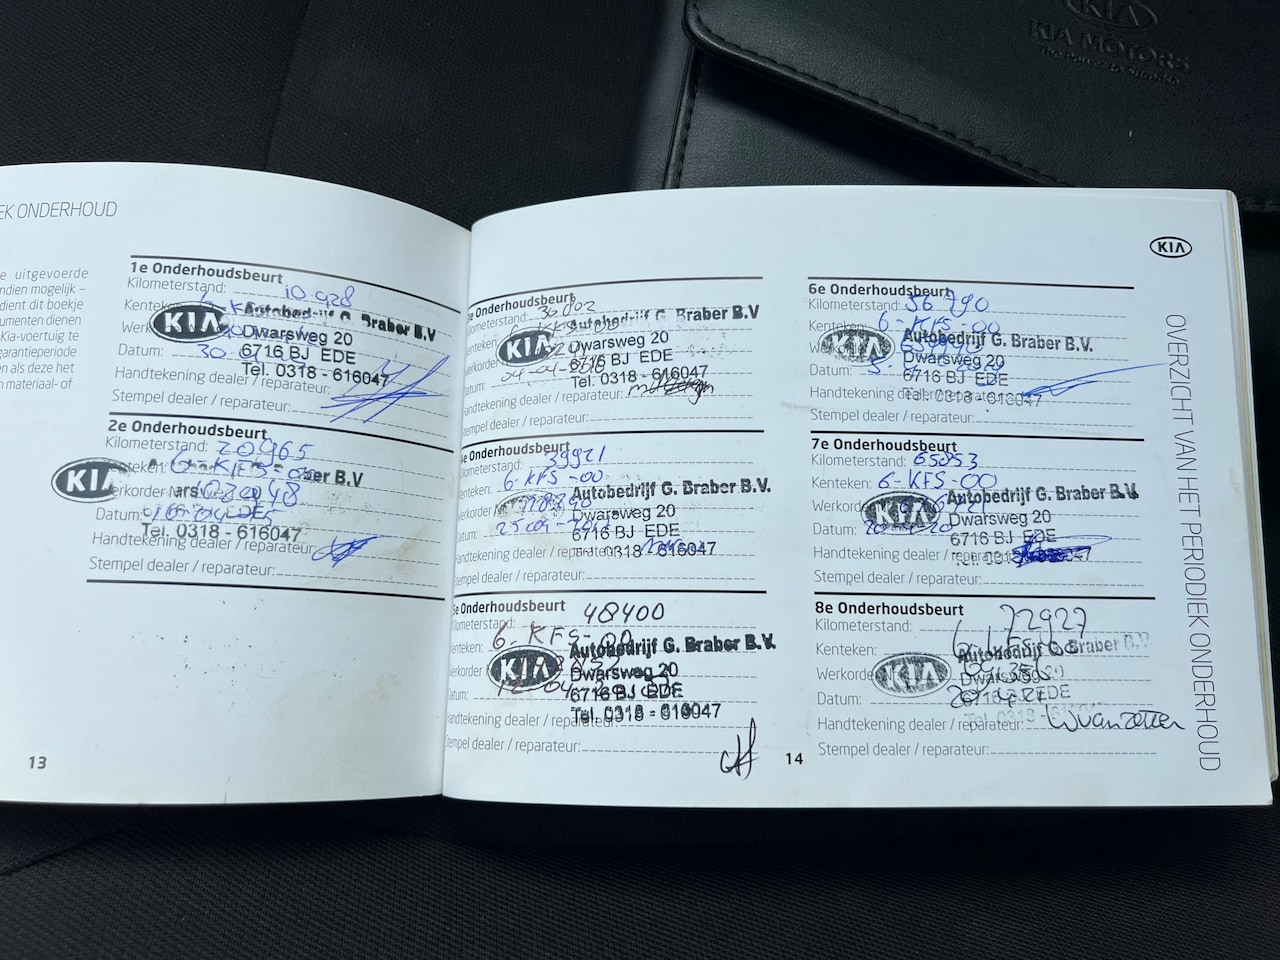 KIA
KIA MOTORS
The Power to Surprise
EK ONDERHOUD
e uitgevoerde
ndien mogelijk –
dient dit boekje
umenten dienen
Kia-voertuig te
garantieperiode
en als deze het
n materiaal- of
1e Onderhoudsbeurt
Kilometerstand: 10.928
Kenteken:
KIA Autobedrijf G. Braber B.V
Dwarsweg 20
Datum: 30
6716 BJ EDE
Tel. 0318 - 616047
Handtekening dealer / reparateur:
Stempel dealer / reparateur:
2e Onderhoudsbeurt
Kilometerstand: 20965
Kenteken: 6-KFS-00
KIA
Werkorder
Datum:
Tel. 0318 - 616047
Handtekening dealer / reparateur:
Stempel dealer / reparateur:
13
Onderhoudsbeurt
Kilometerstand: 36802
Kenteken: 6-KFS-00
KIA Autobedrijf G. Braber B.V
Dwarsweg 20
6716 BJ EDE
Datum: 04-04-
Tel. 0318 - 616047
Handtekening dealer / reparateur:
Stempel dealer / reparateur:
4e Onderhoudsbeurt
Kilometerstand: 39921
Kenteken: 6-KFS-00
Autobedrijf G. Braber B.V.
Werkorder
Dwarsweg 20
6716 BJ EDE
Datum:
0318 - 616047
Handtekening dealer / reparateur:
Stempel dealer / reparateur:
5e Onderhoudsbeurt 48400
Kilometerstand:
Kenteken: 6-KFS-00
KIA Autobedrijf G. Braber B.V.
Werkorder
Dwarsweg 20
6716 BJ EDE
Datum:
Tel. 0318 - 616047
Handtekening dealer / reparateur:
Stempel dealer / reparateur:
14
KIA
OVERZICHT VAN HET PERIODIEK ONDERHOUD
6e Onderhoudsbeurt
Kilometerstand: 56790
Kenteken: 6-KFS-00
KIA Autobedrijf G. Braber B.V.
Dwarsweg 20
Datum:
6716 BJ EDE
Tel. 0318 - 616047
Handtekening dealer / reparateur:
Stempel dealer / reparateur:
7e Onderhoudsbeurt
Kilometerstand: 65053
Kenteken: 6-KFS-00
KIA Autobedrijf G. Braber B.V.
Dwarsweg 20
Datum:
6716 BJ EDE
Handtekening dealer / reparateur:
Stempel dealer / reparateur:
8e Onderhoudsbeurt
Kilometerstand: 72927
Kenteken:
KIA Autobedrijf G. Braber B.V.
Werkorder
Dwarsweg
Datum:
6716 BJ EDE
Tel. 0318 -
Handtekening dealer / reparateur:
Stempel dealer / reparateur: